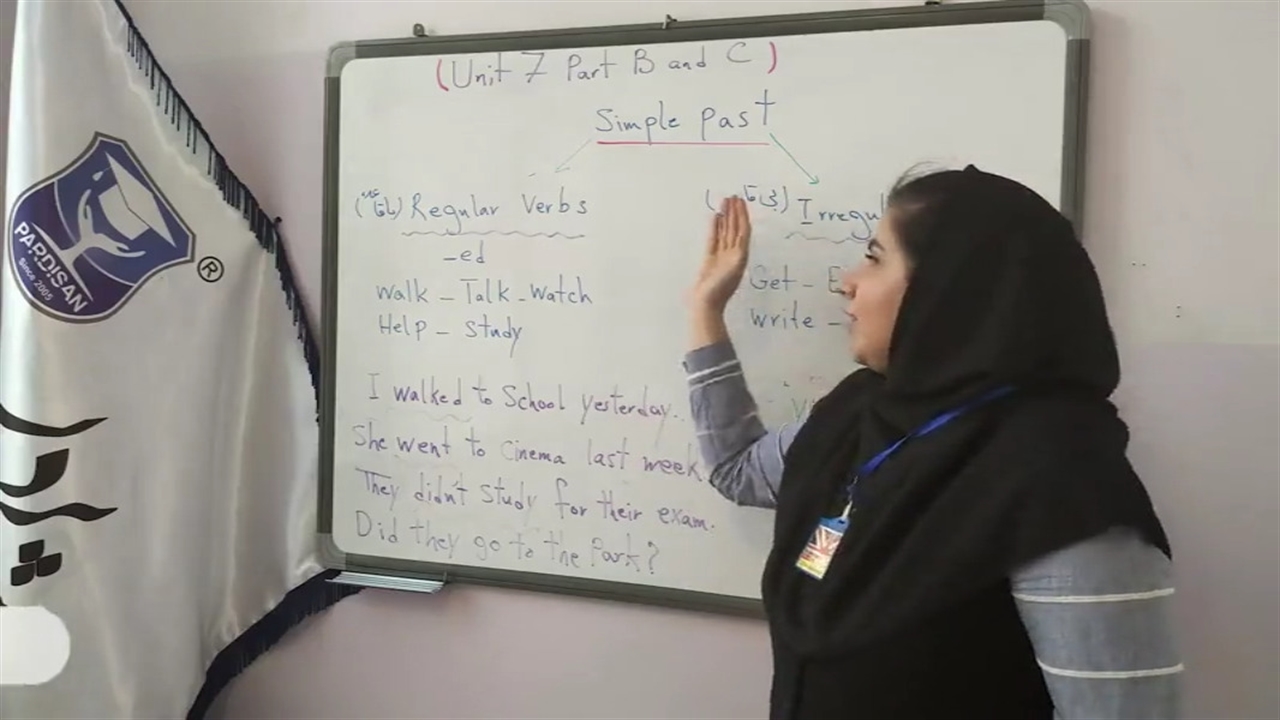 (Unit 7 Part B and C)
Simple past
(باقاعده) Regular Verbs
-ed
Walk - Talk - Watch
Help - Study
I walked to School yesterday.
She went to Cinema last week.
They didn't study for their exam.
Did they go to the Park?
Irregul
Get - E
Write -
PARDISAN
Since 2005
®